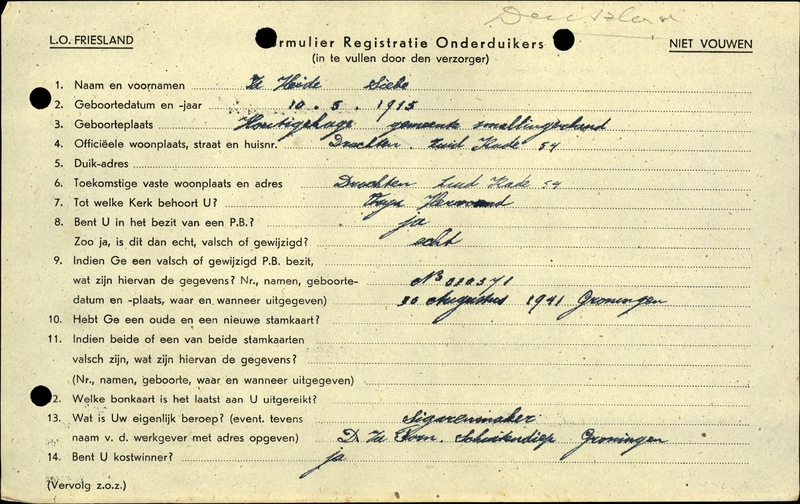 L.O. FRIESLAND
Formulier Registratie Onderduikers
NIET VOUWEN
(in te vullen door den verzorger)
1. Naam en voornamen vd Heide Siebe
2. Geboortedatum en -jaar 10 . 5 . 1915
3. Geboorteplaats Houtigehage gemeente Smallingerland
4. Officiëele woonplaats, straat en huisnr. Drachten. Zuid Kade 54
5. Duik-adres
6. Toekomstige vaste woonplaats en adres Drachten Zuid Kade 54
7. Tot welke Kerk behoort U? Hervormd
8. Bent U in het bezit van een P.B.? ja
Zoo ja, is dit dan echt, valsch of gewijzigd? echt
9. Indien Ge een valsch of gewijzigd P.B. bezit,
wat zijn hiervan de gegevens? Nr., namen, geboorte-
datum en -plaats, waar en wanneer uitgegeven) 30 Augustus 1941 Groningen
10. Hebt Ge een oude en een nieuwe stamkaart?
11. Indien beide of een van beide stamkaarten
valsch zijn, wat zijn hiervan de gegevens?
(Nr., namen, geboorte, waar en wanneer uitgegeven)
2. Welke bonkaart is het laatst aan U uitgereikt?
13. Wat is Uw eigenlijk beroep? (event. tevens Sigarenmaker
naam v. d. werkgever met adres opgeven) D. vd Schuitendiep Groningen
14. Bent U kostwinner? ja
(Vervolg z.o.z.)